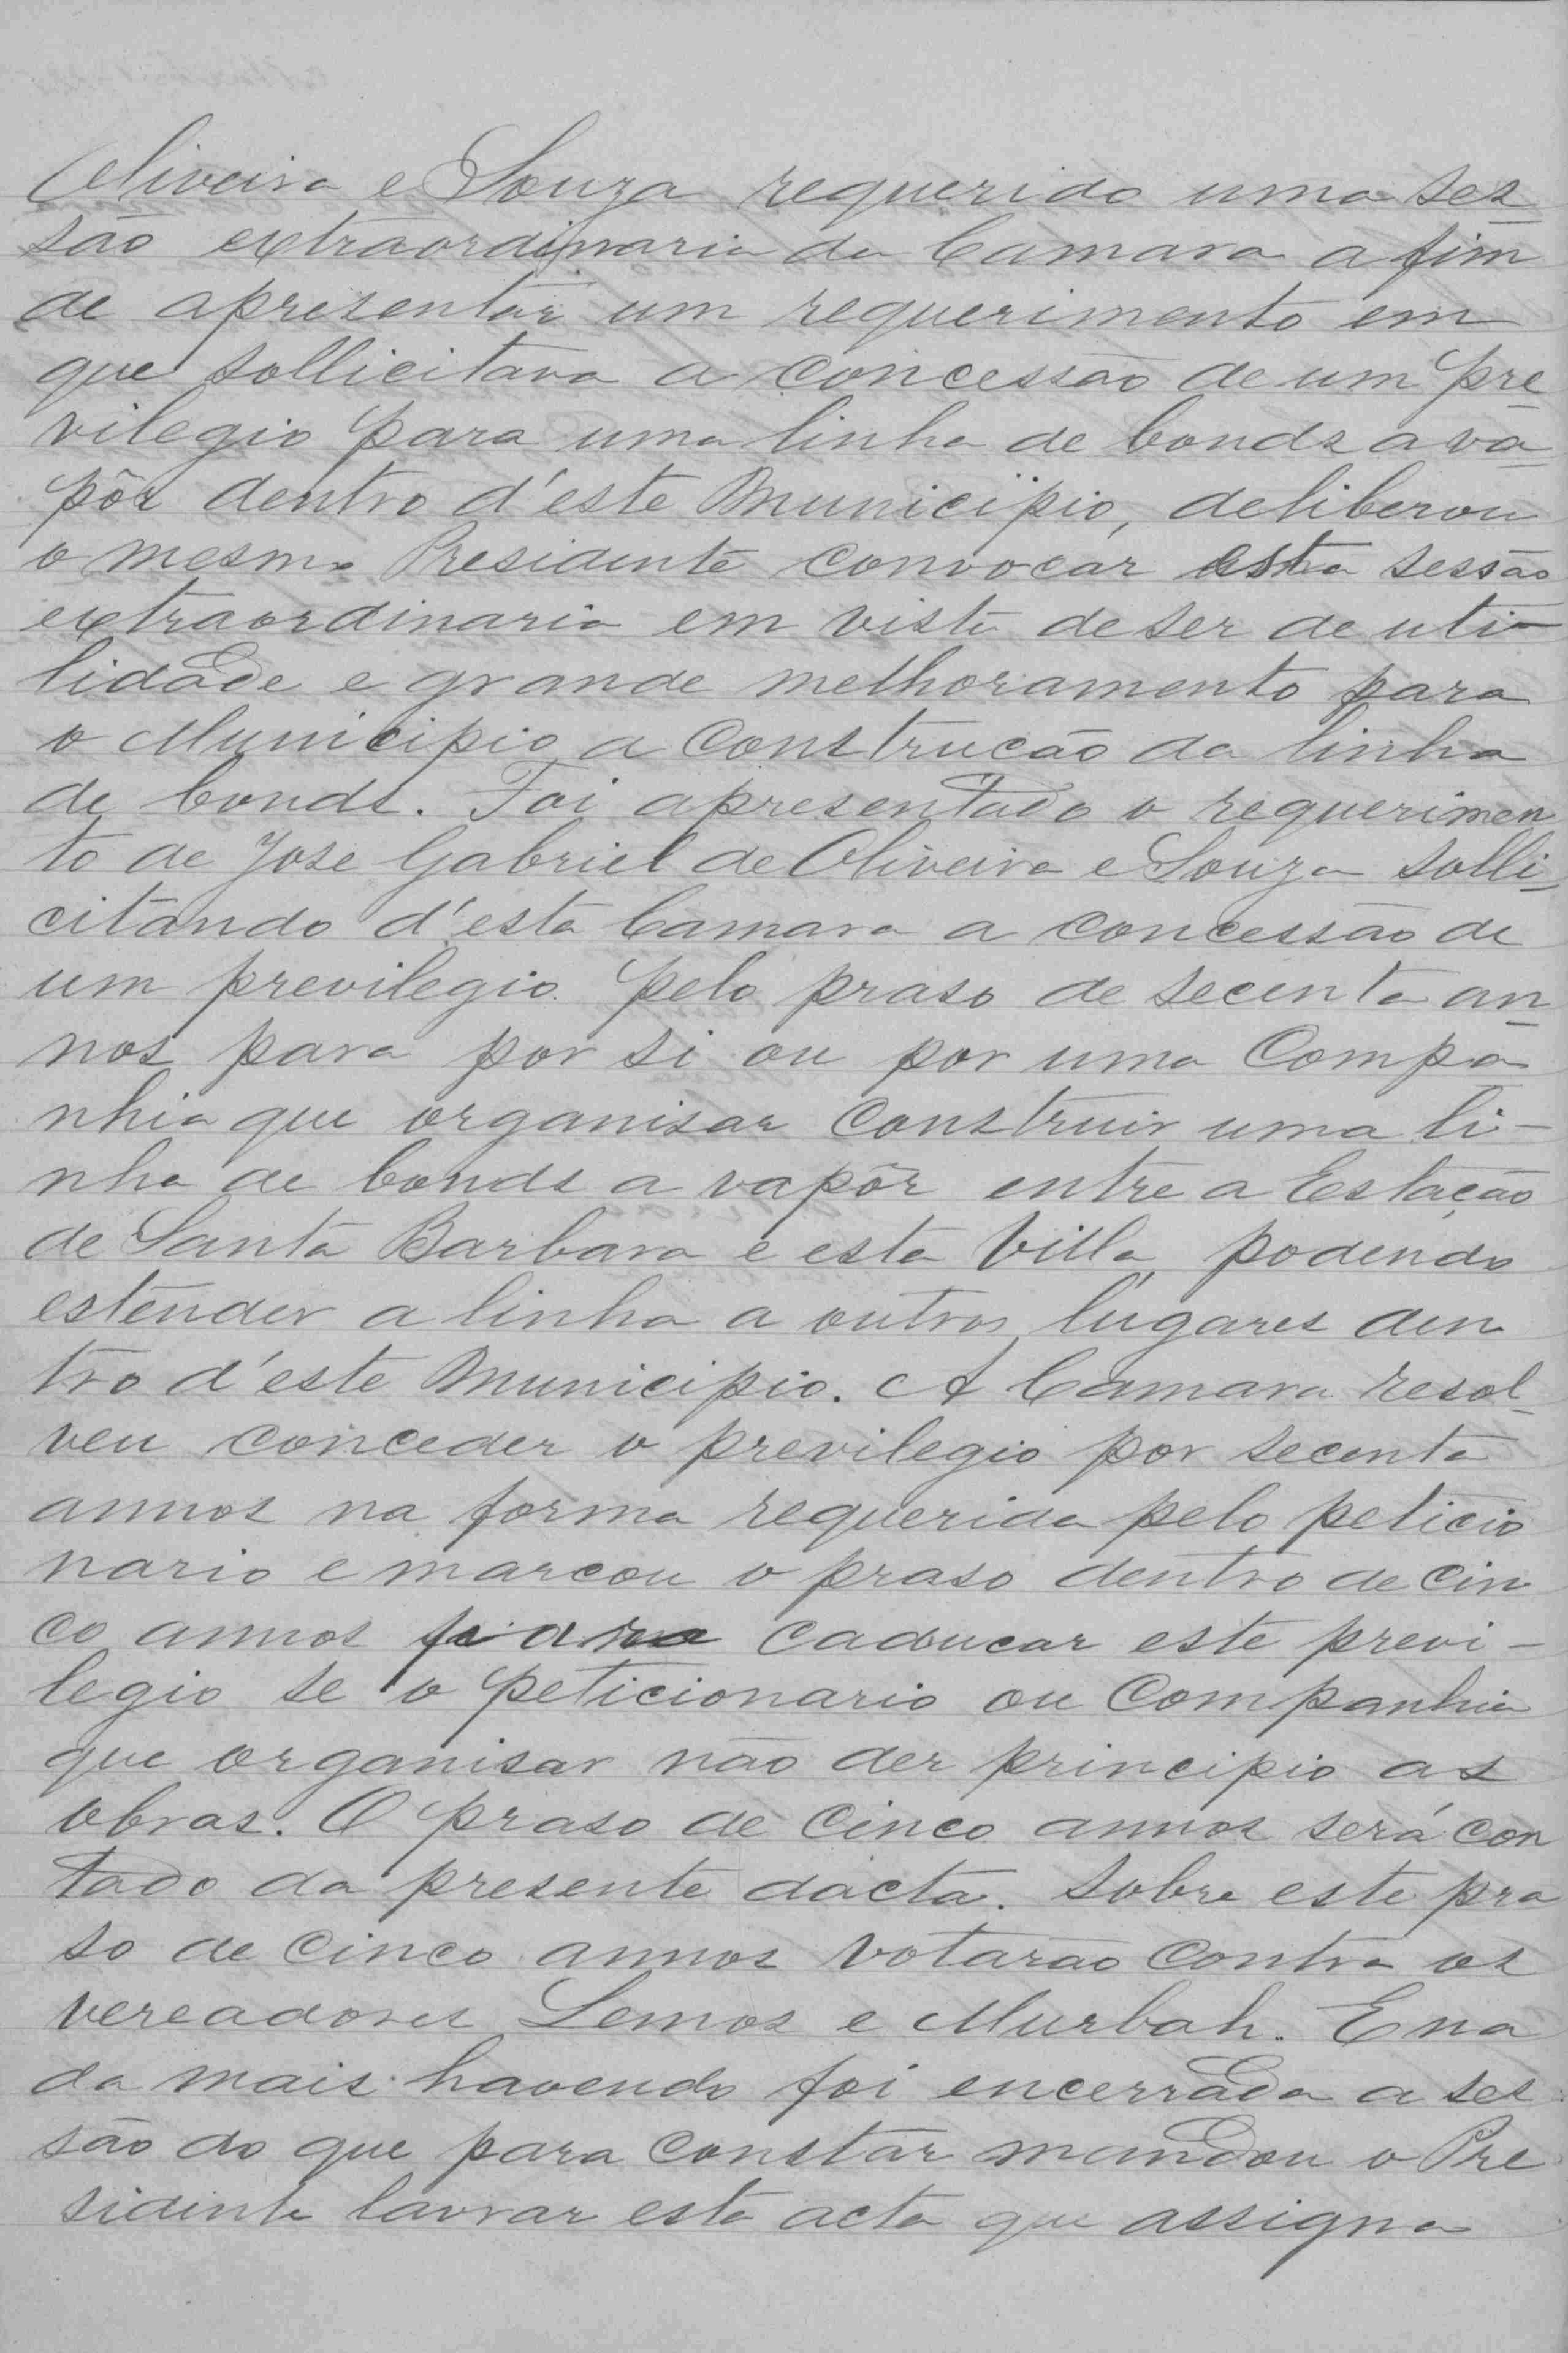 Oliveira e Souza requerido uma ses-
são extraordinaria da Camara a fim
de apresentar um requerimento em
que sollicitava a concessão de um pre-
vilegio para uma linha de bonds a va-
pôr dentro d'este Municipio, deliberou
o mesmo Presidente convocar esta sessão
extraordinaria em vista de ser de uti-
lidade e grande melhoramento para
o Municipio a construcão da linha
de bonds. Foi apresentado o requerimen
to de Jose Gabriel de Oliveira e Souza solli-
citando d'esta Camara a concessão de
um previlegio pelo praso de secenta an-
nos para por si ou por uma Compa
nhia que organisar construir uma li-
nha de bonds a vapôr entre a Estação
de Santa Barbara e esta Villa, podendo
estender a linha a outros lugares den
tro d'este Municipio. A Camara resol-
veu conceder o previlegio por secenta
annos na forma requerida pelo peticio
nario e marcou o praso dentro de cin
co annos para caducar este previ-
legio se o peticionario ou Companhia
que organisar não der principio as
obras. O praso de cinco annos será con
tado da presente dacta. Sobre este pra
so de cinco annos votarão contra os
vereadores Lemos e Murbah. E na
da mais havendo foi encerrada a ses
são do que para constar mandou o Pre
sidente lavrar esta acta que assigna